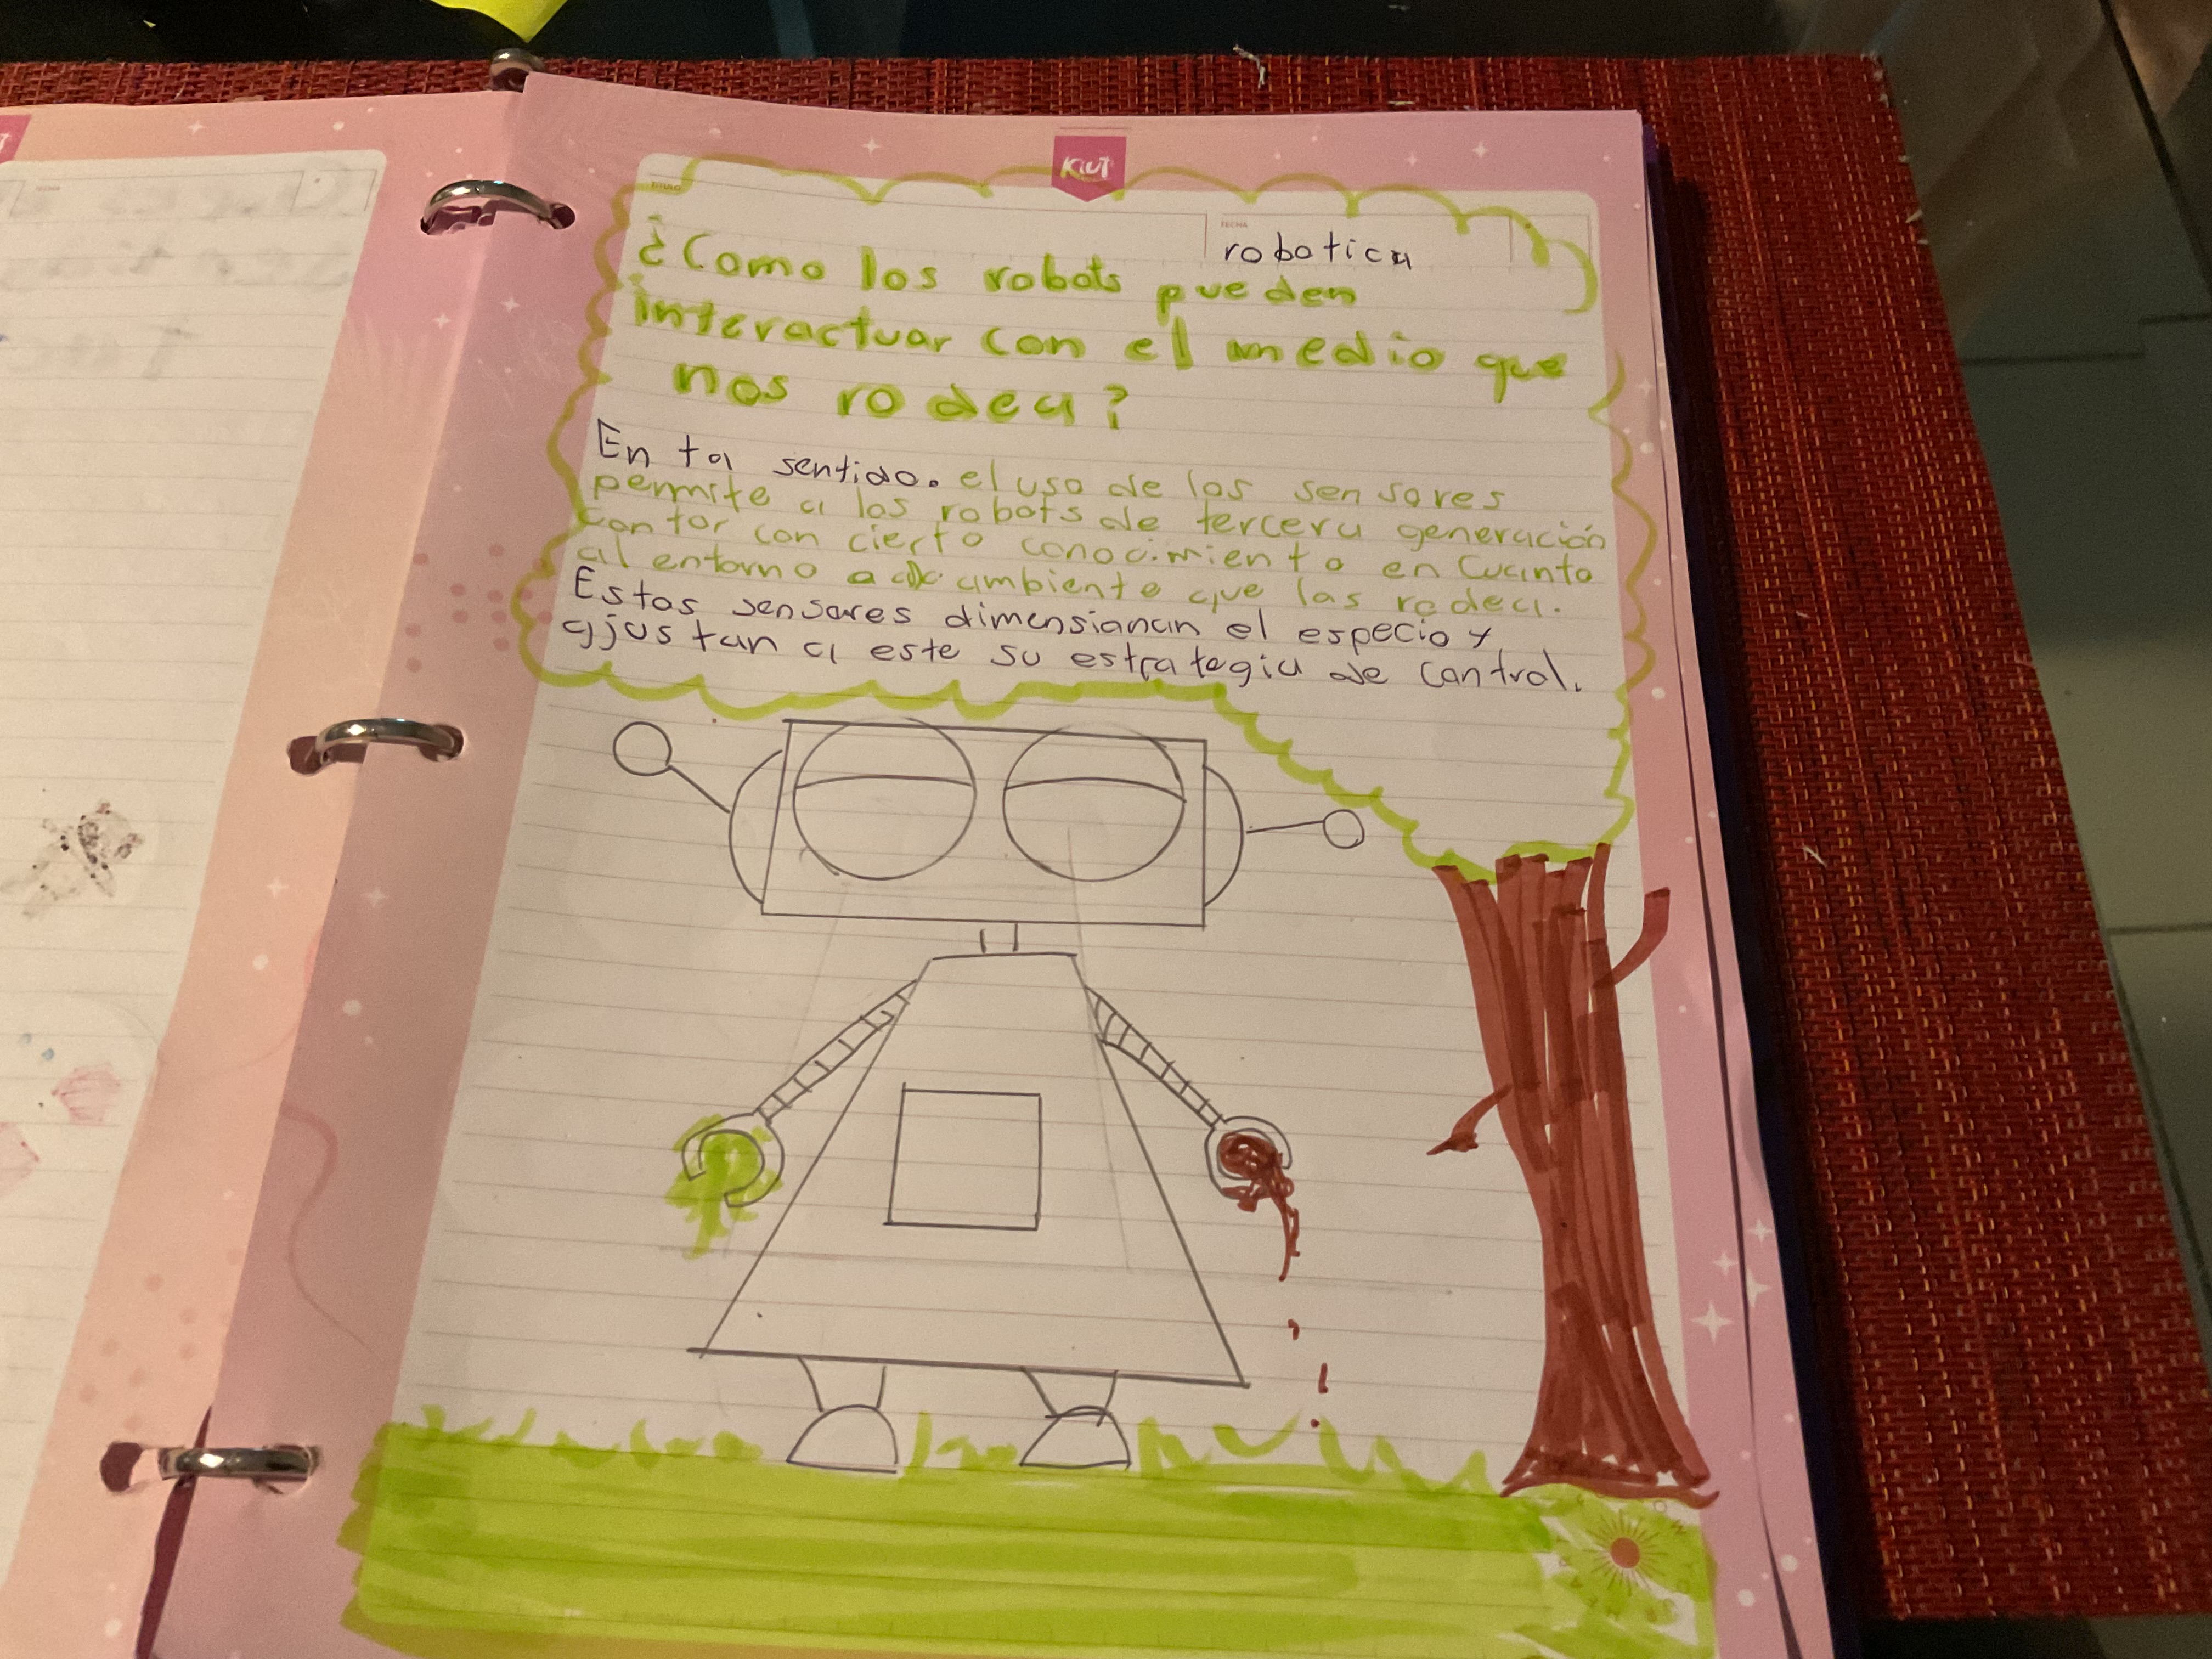 KIUT
TITULO
FECHA
robotica
¿Como los robots pueden
interactuar con el medio que
nos rodea?
En tal sentido. el uso de los sensores
permite a los robots de tercera generación
contor con cierto conocimiento en cuanto
al entorno a ambiente que las rodea.
Estos sensores dimensionan el especio y
ajustan a este su estrategia de control.